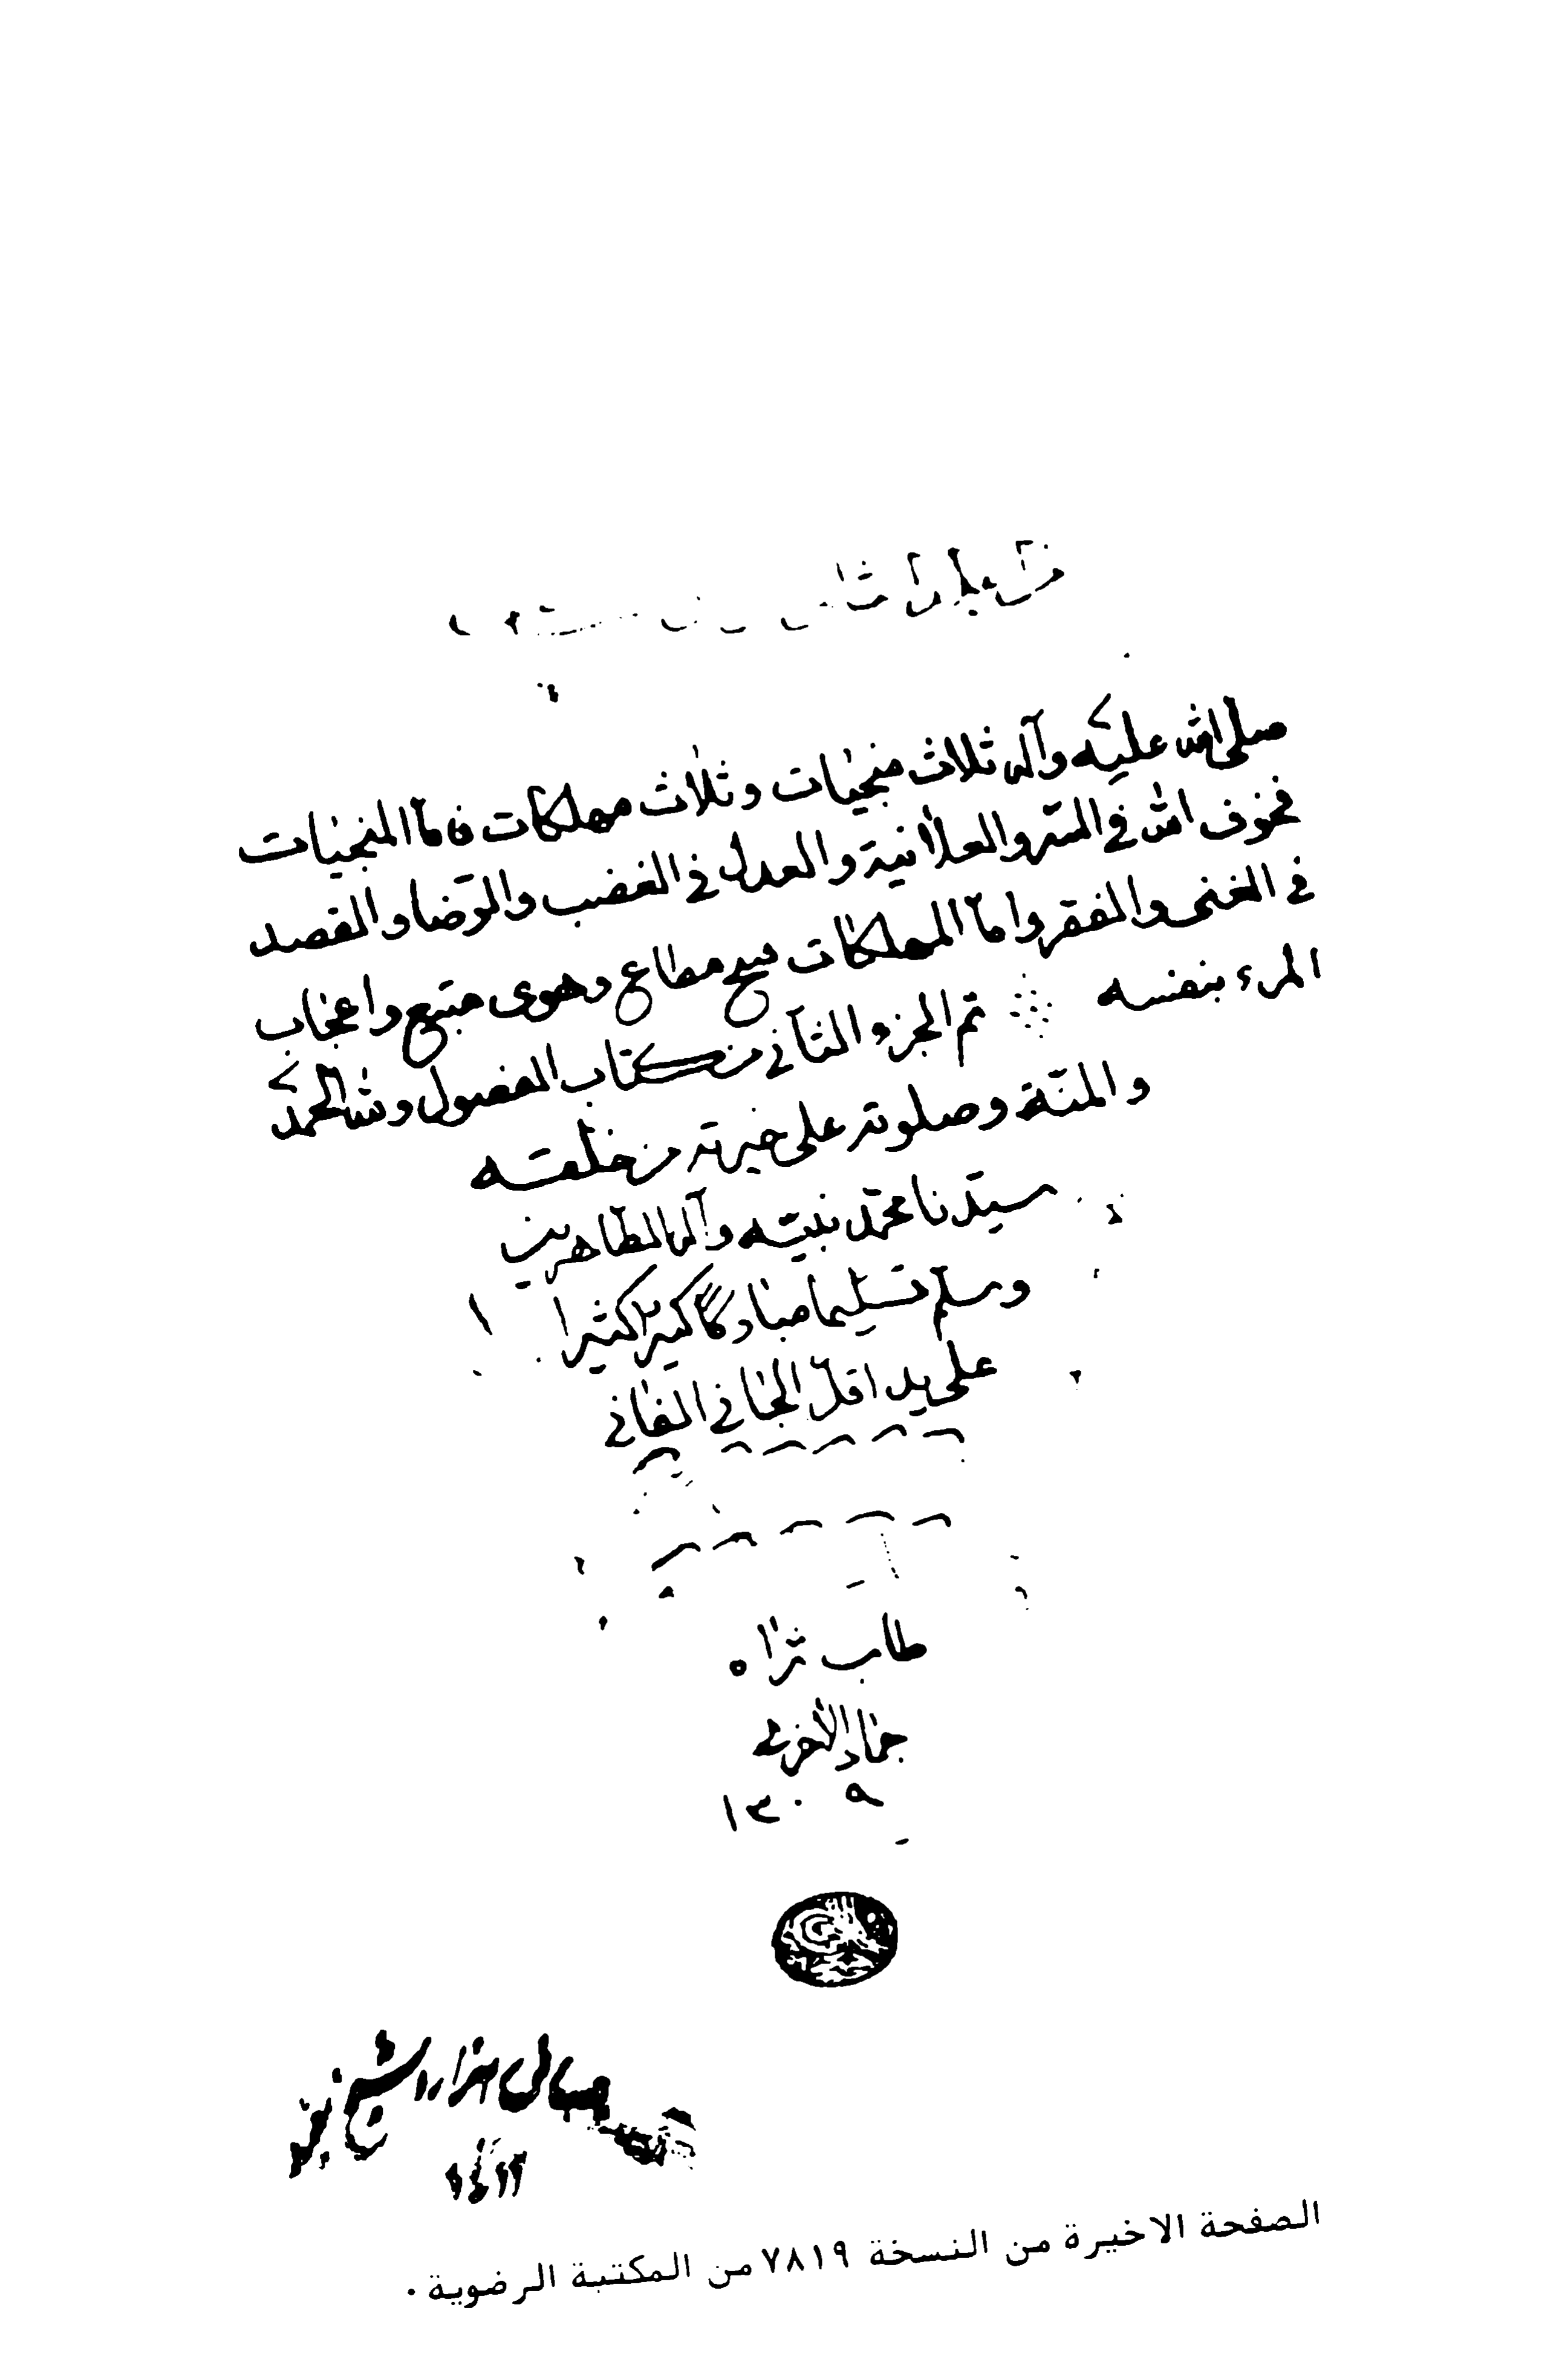 صلى الله عليه وآله ثلاث منجيات وثلاث مهلكات فاما المنجيات
فخوف الله في السر والعلانية والعدل في الغضب والرضا والقصد
في الغنى والفقر واما المهلكات فشح مطاع وهوى متبع واعجاب
المرء بنفسه تم الجزء الثاني من كتاب الفصول ولله الحمد
والمنة وصلوته على خيرته من خلقه
سيدنا محمد نبيه وآله الطاهرين
وسلم تسليما مباركا كثيرا كثيرا
على يد اقل الجاني الفاني
طاب ثراه
جمادالاخرى
١٣٠٩
الصفحة الاخيرة من النسخة ٧٨١٩ من المكتبة الرضوية .